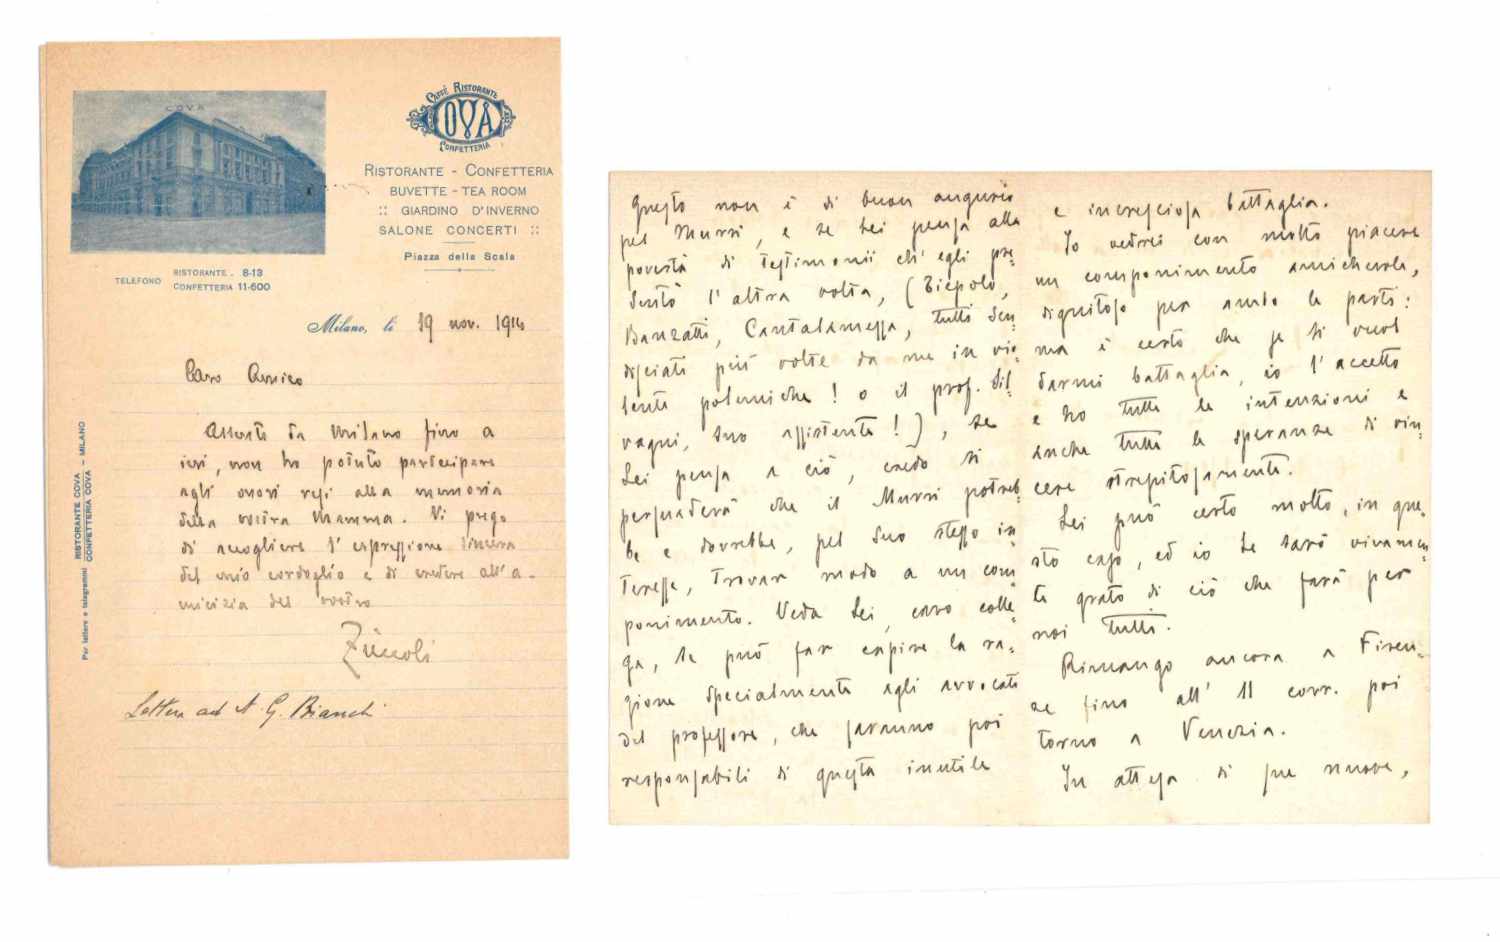 COVA
CAFFÈ RISTORANTE
COVA
CONFETTERIA
RISTORANTE - CONFETTERIA
BUVETTE - TEA ROOM
:: GIARDINO D'INVERNO
SALONE CONCERTI ::
Piazza della Scala
TELEFONO
RISTORANTE . 8-13
CONFETTERIA 11-600
Milano, li 19 nov. 1916
Per lettere e telegrammi
RISTORANTE COVA
CONFETTERIA COVA - MILANO
Caro Amico
Assente da Milano fino a
ieri, non ho potuto partecipare
agli onori resi alla memoria
della vostra Mamma. Vi prego
di accogliere l'espressione sincera
del mio cordoglio e di credere all'a-
micizia del vostro
Zùccoli
Lettera ad A. G. Bianchi
Questo non è di buon augurio
pel Murri, e se Lei pensa alla
povertà di testimonii ch'egli pre-
sentò l'altra volta, (Tiepolo,
Banzatti, Cantalamessa, tutti scu-
disciati più volte da me in vio-
lente polemiche! o il prof. Sil-
vagni, suo assistente!), se
Lei pensa a ciò, credo si
persuaderà che il Murri potreb-
be e dovrebbe, pel suo stesso in-
teresse, trovar modo a un com-
ponimento. Veda Lei, caro colle-
ga, se può far capire la ra-
gione specialmente agli avvocati
del professore, che saranno poi
responsabili di questa inutile
e incresciosa battaglia.
Io vedrei con molto piacere
un componimento amichevole,
dignitoso per ambo le parti:
ma è certo che se si vuol
darmi battaglia, io l'accetto
e ho tutte le intenzioni e
anche tutte le speranze di vin-
cere strepitosamente.
Lei può certo molto, in que-
sto caso, ed io Le sarò vivamen-
te grato di ciò che farà per
noi tutti.
Rimango ancora a Firen-
ze fino all' 11 corr. poi
torno a Venezia.
In attesa di sue nuove,